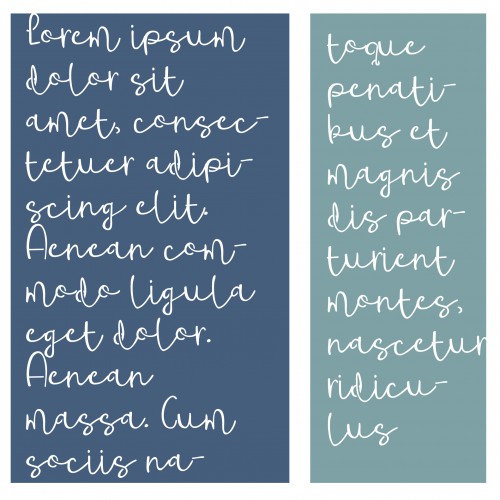 Lorem ipsum
dolor sit
amet, consec-
tetuer adipi-
scing elit.
Aenean com-
modo ligula
eget dolor.
Aenean
massa. Cum
sociis na-
toque
penati-
bus et
magnis
dis par-
turient
montes,
nascetur
ridicu-
lus